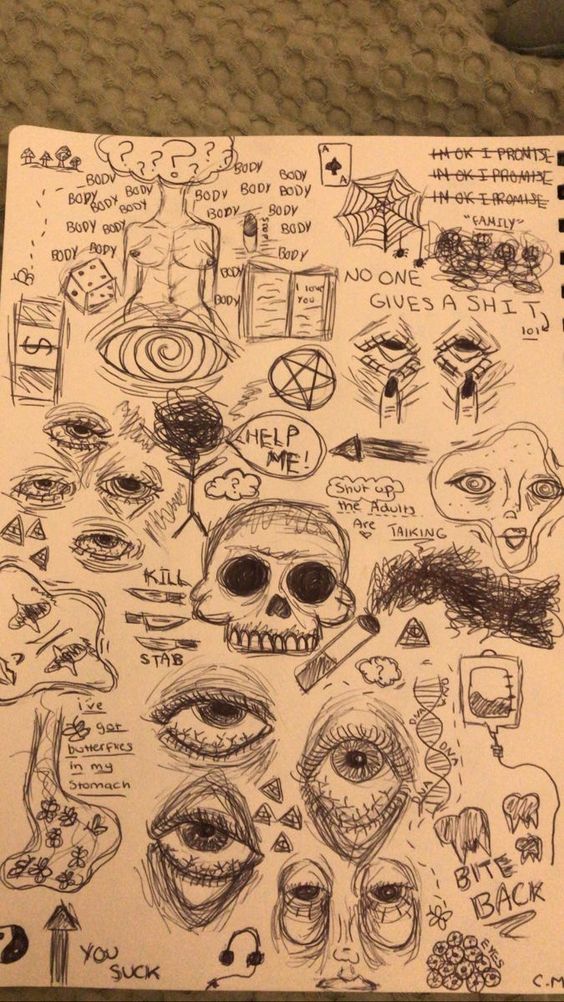 ? ? ? ? ?
BODY BODY BODY
BODY BODY BODY BODY BODY
BODY BODY BODY BODY
BODY BODY
BODY BODY BODY
BODY
BODY
A
A
IM OK I PROMISE
IM OK I PROMISE
IM OK I PROMISE
"FAMILY"
I love
you
NO ONE
GIVES A SHIT
101
$
HELP
ME!
Shut up
the Adults
Are TALKING
KILL
STAB
i've
got
butterflies
in my
Stomach
DNA
DNA
DNA
BITE
BACK
YOU
SUCK
EYES
C.M